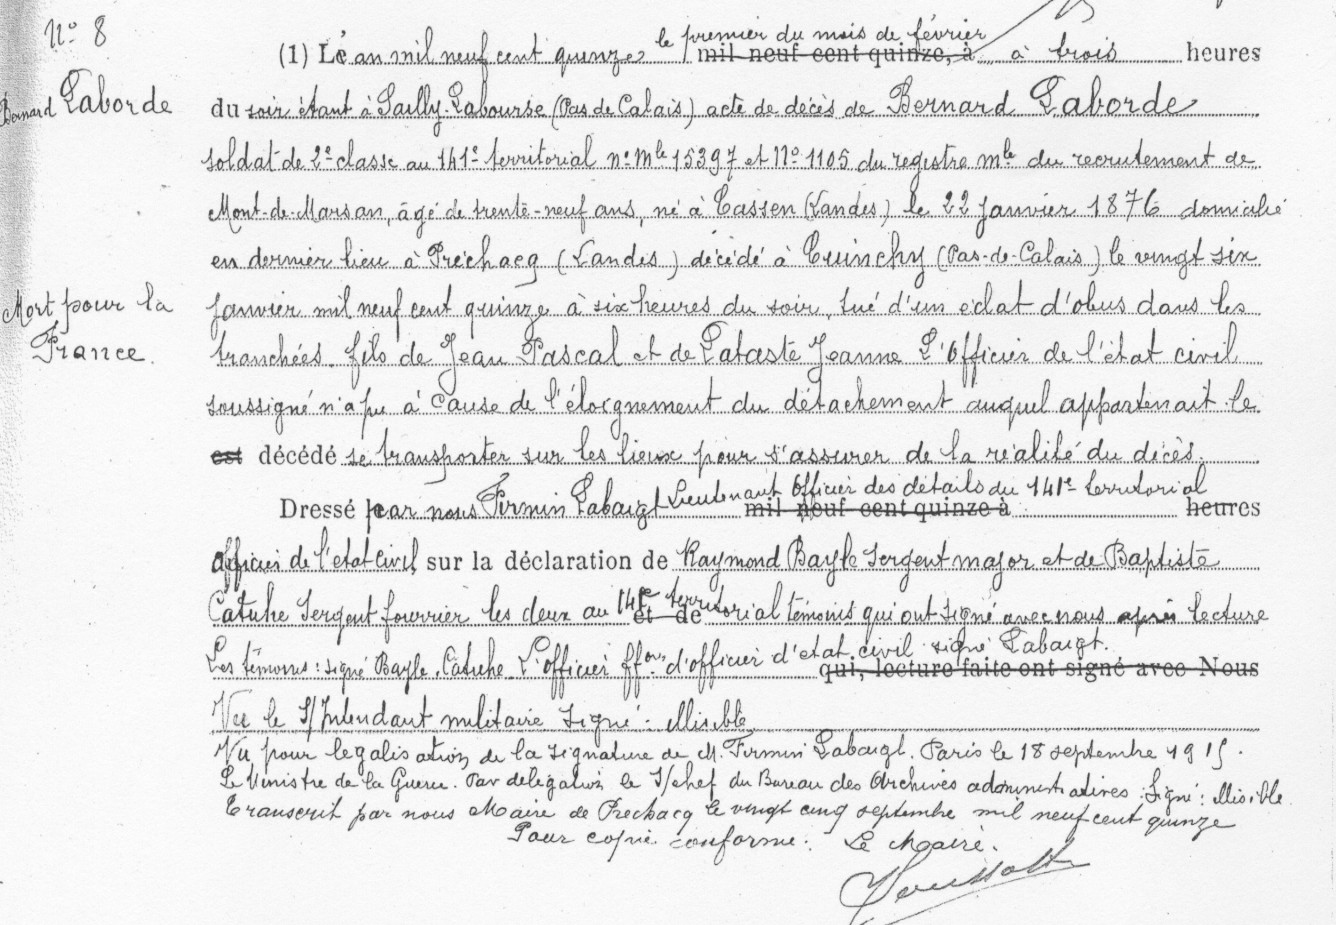 N° 8
Bernard Laborde
Mort pour la
France.
(1) L'an mil neuf cent quinze le premier du mois de février mil neuf cent quinze, à à trois heures
du soir étant à Sailly-Labourse (Pas de Calais) acte de décès de Bernard Laborde
soldat de 2e classe au 141e territorial n° mle 15397 et N° 1105 du registre mle du recrutement de
Mont-de-Marsan, âgé de trente-neuf ans, né à Cassen (Landes) le 22 janvier 1876 domicilié
en dernier lieu à Préchacq (Landes) décédé à Cuinchy (Pas-de-Calais) le vingt six
janvier mil neuf cent quinze à six heures du soir, tué d'un éclat d'obus dans les
tranchées. fils de Jean Pascal et de Lataste Jeanne L'Officier de l'état civil
soussigné n'a pu à cause de l'éloignement du détachement auquel appartenait le
est décédé se transporter sur les lieux pour s'assurer de la réalité du décès.
Dressé par nous Firmin Labaigt Lieutenant Officier des détails du 141e territorial mil neuf cent quinze à heures
officier de l'etat civil sur la déclaration de Raymond Bayle Sergent major et de Baptiste
Catuhe Sergent fourrier les deux au 141e territorial et de témoins qui ont signé avec nous après lecture
Les témoins : signé Bayle, Catuhe. L'officier ffons d'officier d'état civil signé Labaigt. qui, lecture faite ont signé avec Nous
Vu le S/Intendant militaire Signé : illisible
Vu pour légalisation de la signature de M. Firmin Labaigt. Paris le 18 septembre 1915.
Le Ministre de la Guerre. Par délégation le S/chef du Bureau des Archives administratives : Signé : illisible
Transcrit par nous Maire de Prechacq le vingt cinq septembre mil neuf cent quinze
Pour copie conforme. Le Maire.